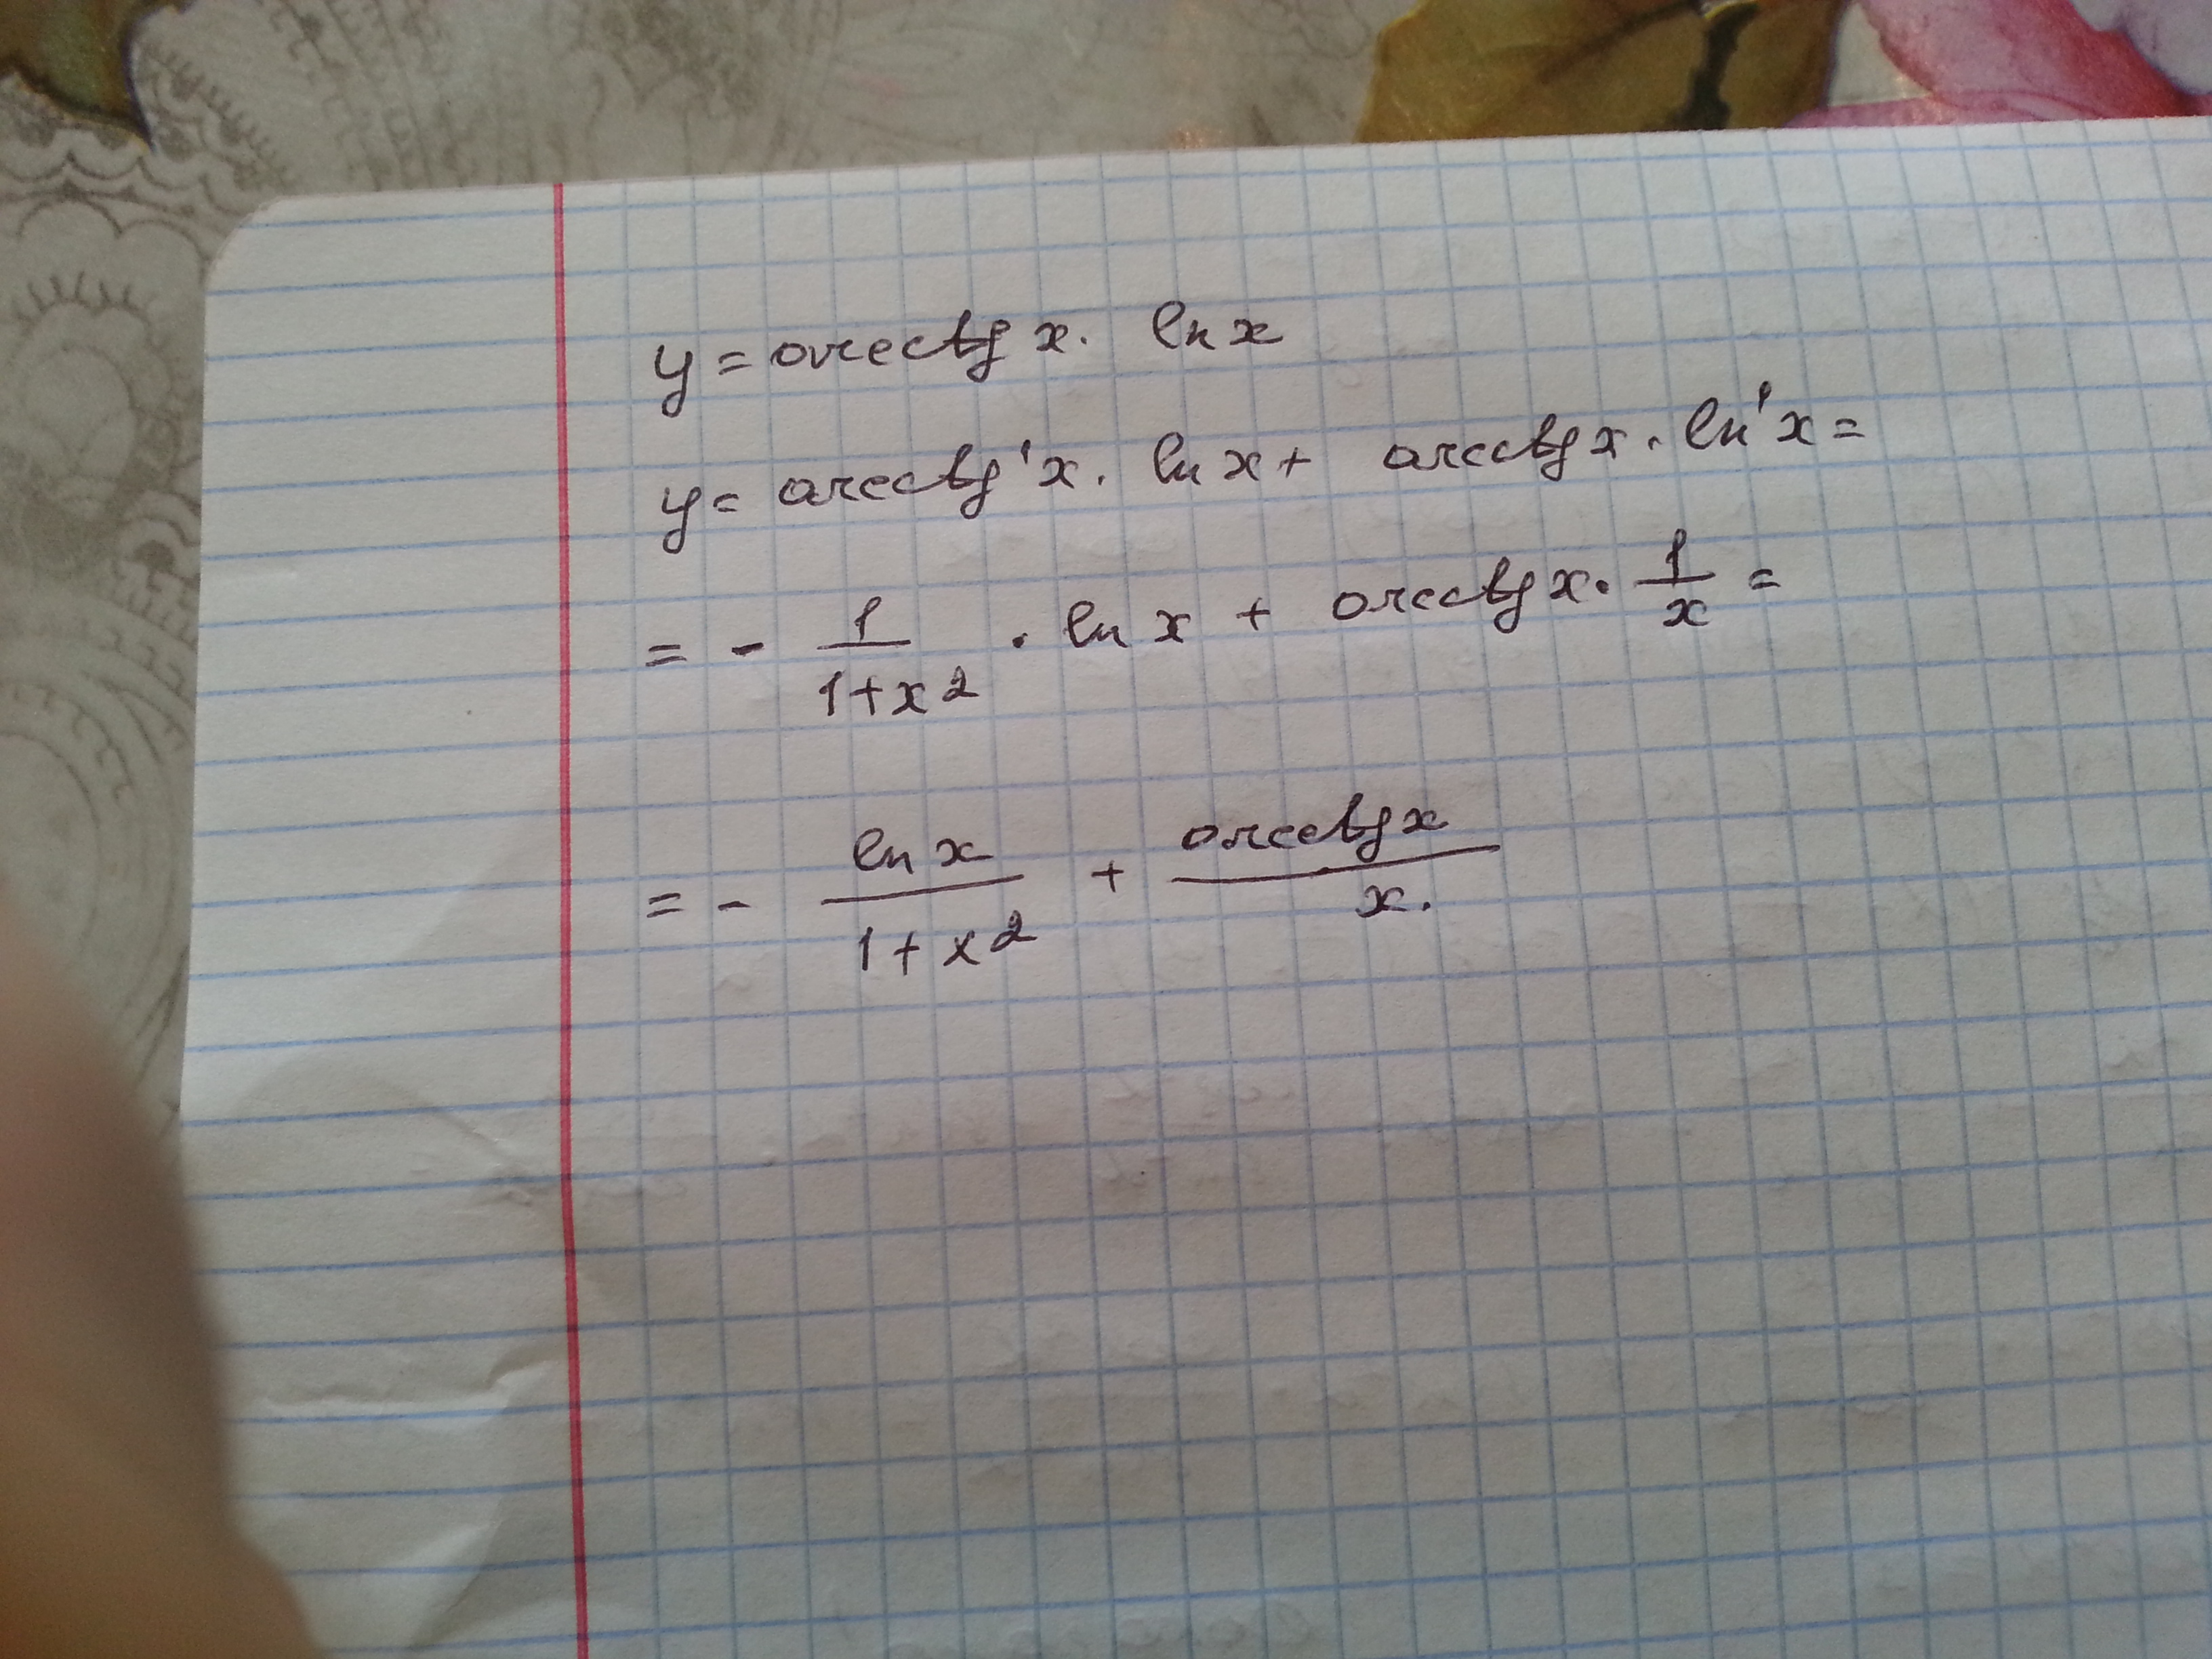 y = arcctg x · ln x
y = arcctg'x · ln x + arcctg x · ln'x =
= - 1/(1+x²) · ln x + arcctg x · 1/x =
= - ln x/(1+x²) + arcctg x/x.